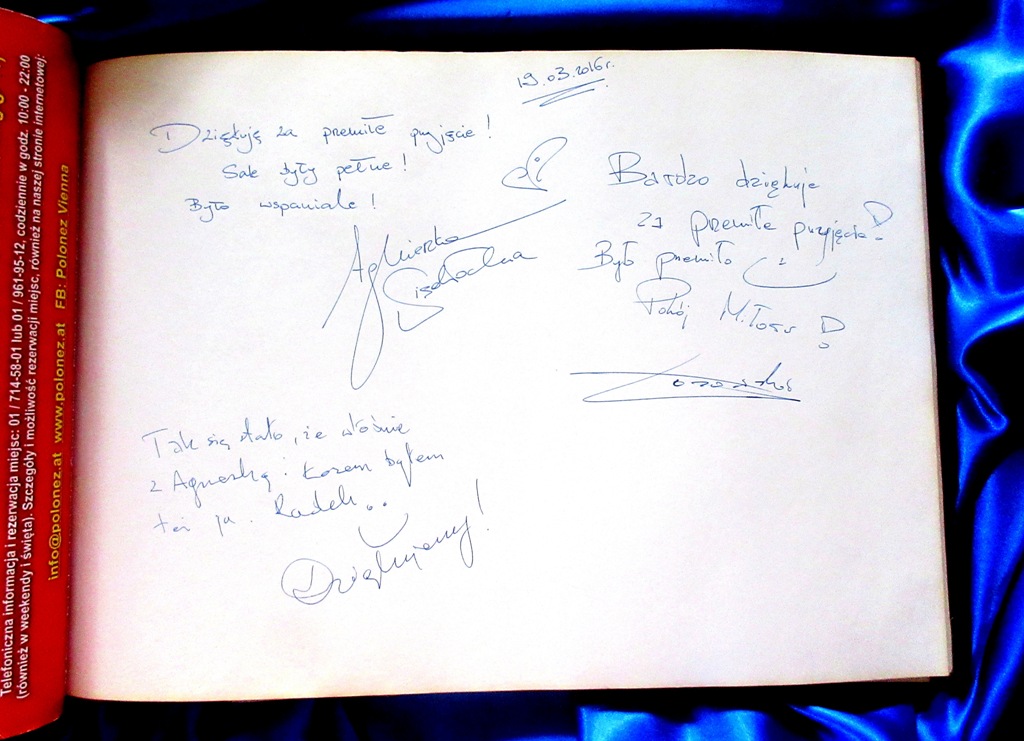 Telefoniczna informacja i rezerwacja miejsc: 01 / 714-58-01 lub 01 / 961-95-12, codziennie w godz. 10:00 - 22:00
(również w weekendy i święta). Szczegóły i możliwość rezerwacji miejsc, również na naszej stronie internetowej:
info@polonez.at www.polonez.at FB: Polonez Vienna
19.03.2016r.
Dziękuję za premiłe przyjęcie!
Sale były pełne!
Było wspaniale!
Agnieszka
Bardzo dziękuje
za premiłe przyjęcie!
Było premiło
Pokój
Tak się stało, że właśnie
z Agnieszką i
byłem
też ja. Radek..
Dziękujemy!